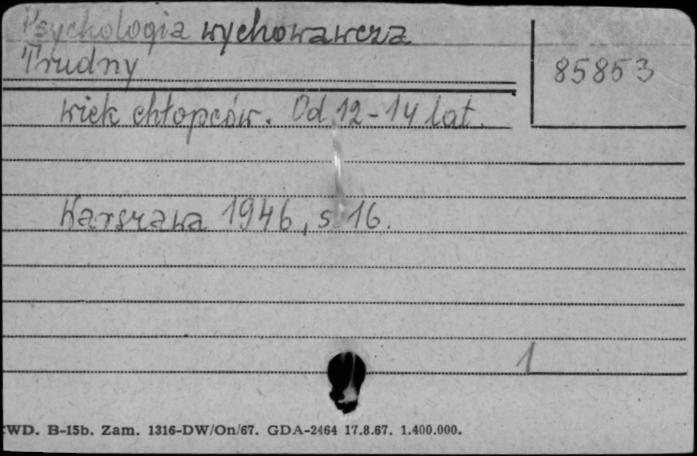 Psychologia wychowawcza
Trudny
85853
wiek chłopców. Od 12-14 lat.
Warszawa 1946, s. 16.
1
WD. B-15b. Zam. 1316-DW/On/67. GDA-2464 17.8.67. 1.400.000.